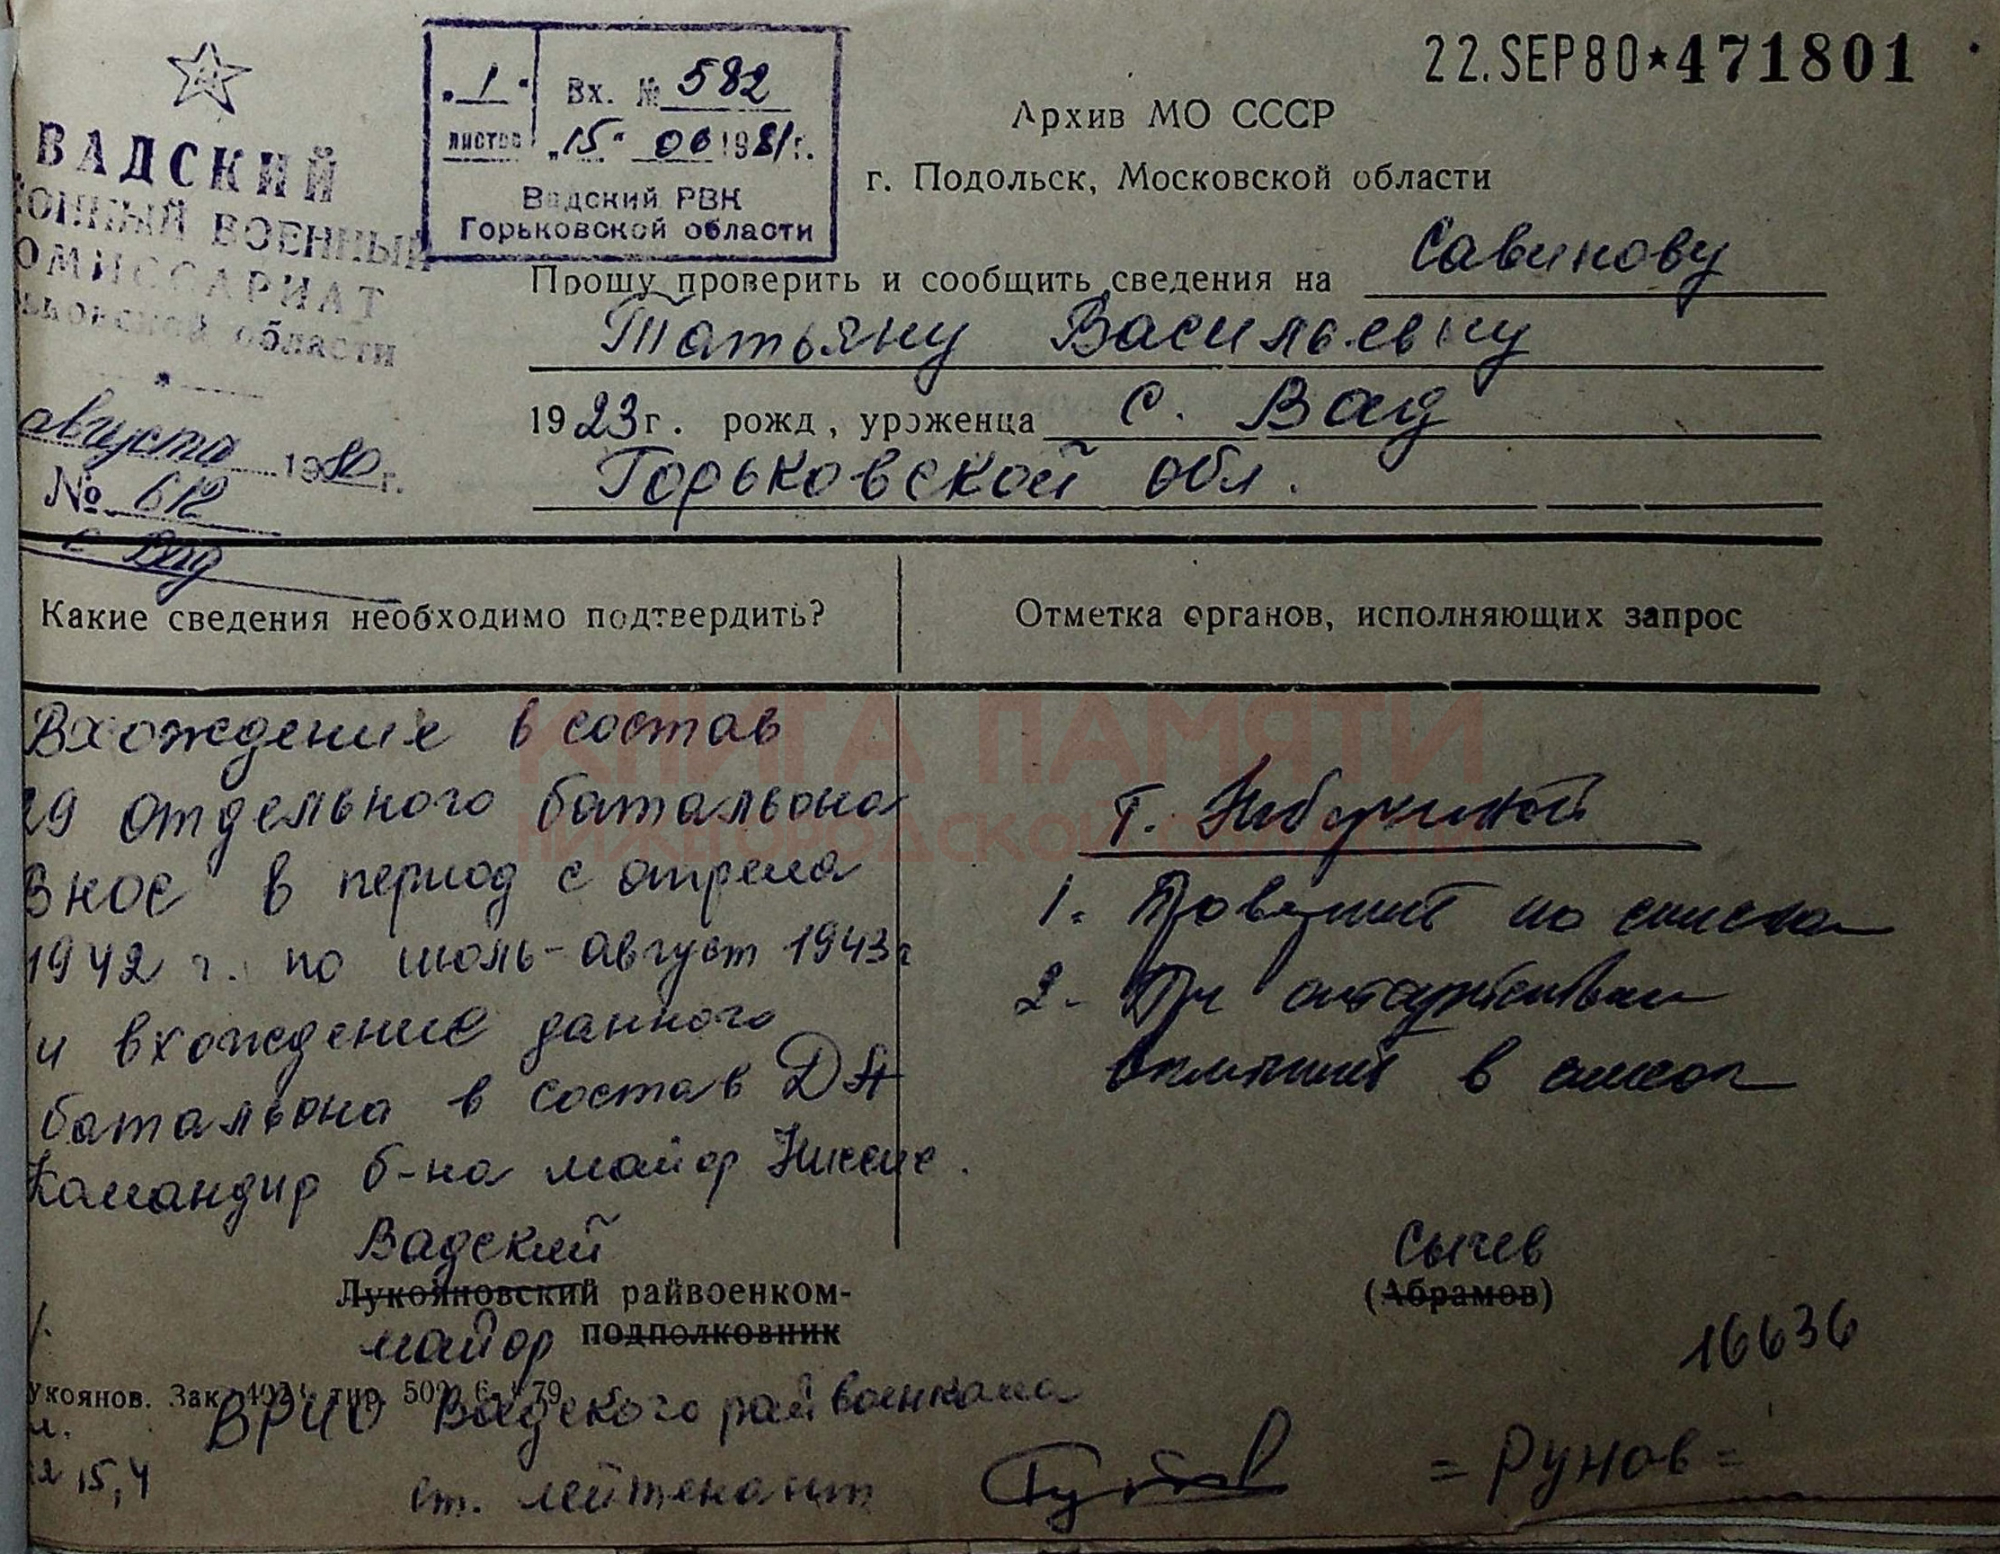 22.SEP80★471801
„1“ Вх. № 582
листов „15“ 06 1981 г.
Вадский РВК
Горьковской области
ВАДСКИЙ
ОННЫЙ ВОЕННЫЙ
ОМИССАРИАТ
ьковской области
августа 1980 г.
№ 612
с Вад
Архив МО СССР
г. Подольск, Московской области
Прошу проверить и сообщить сведения на Савинову
Татьяну Васильевну
1923 г. рожд, уроженца с. Вад
Горьковской обл.
Какие сведения необходимо подтвердить?
Отметка органов, исполняющих запрос
Вхождение в состав
29 отдельного батальона
ВНОС в период с апреля
1942 г. по июль-август 1943 г
и вхождение данного
батальона в состав ДА
Командир б-на майор
КНИГА ПАМЯТИ
НИЖЕГОРОДСКОЙ ОБЛАСТИ
т.
1. Проверить по спискам
2. При отсутствии
включить в список
Вадский
Лукояновский райвоенком-
майор подполковник
Сычев
(Абрамов)
16636
укоянов. Зак. тир. 500 79
ВРИО Вадского райвоенкома
ст. лейтенант = Рунов =
15,4